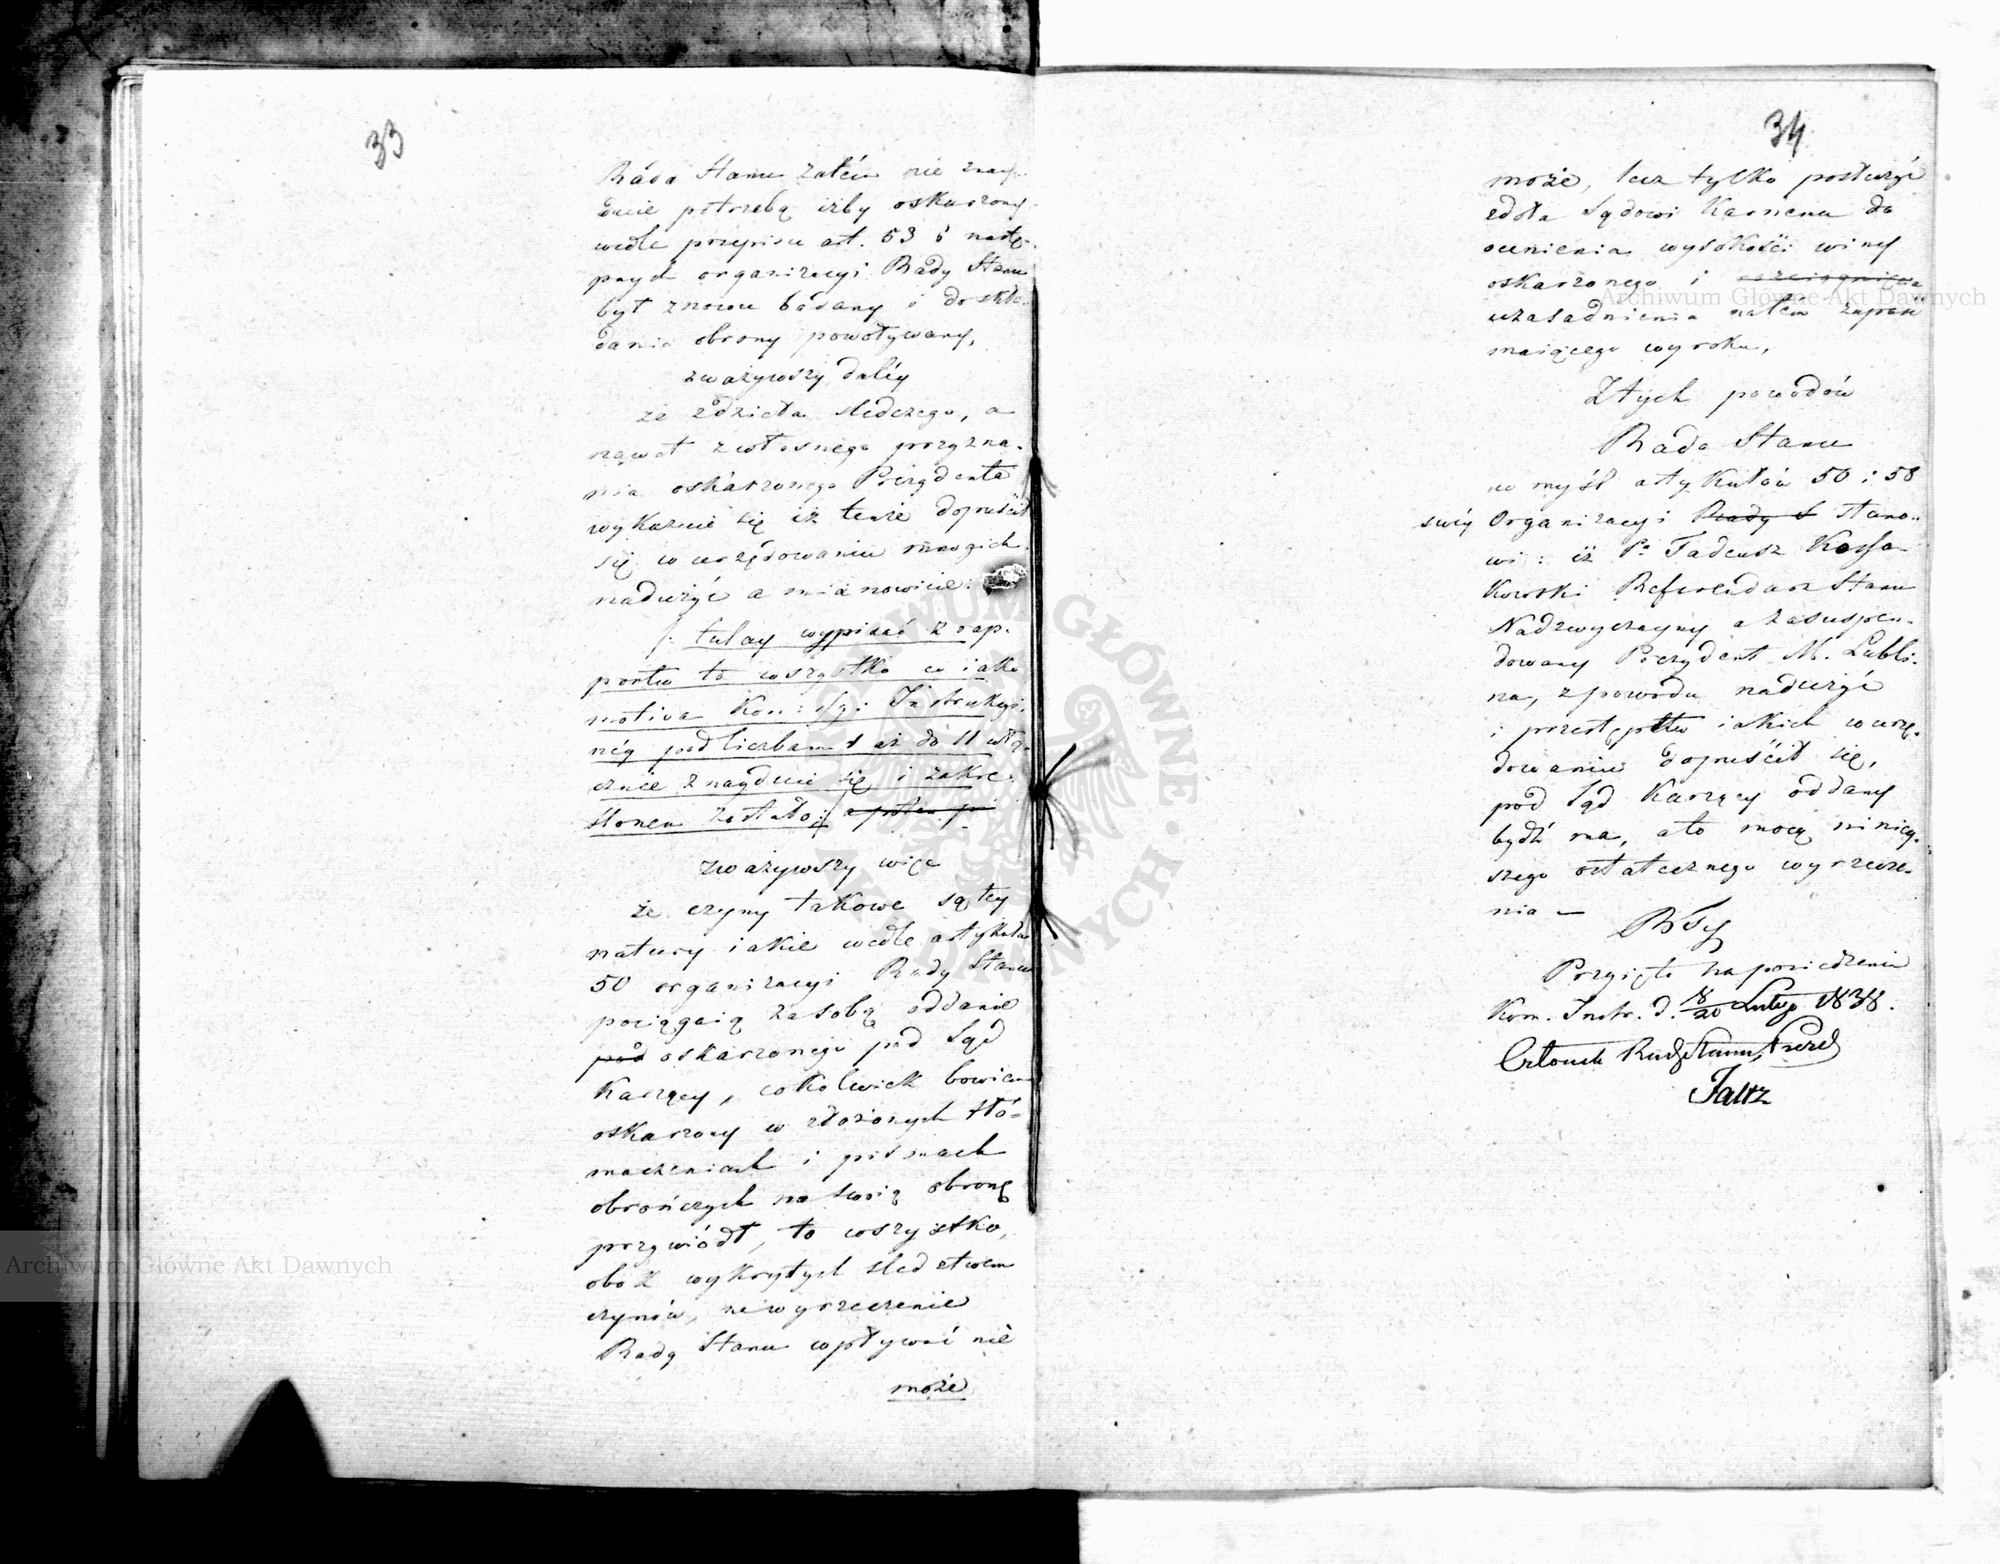 33
Rada Stanu zatém nie znay-
duie potrzebą iżby oskarżony
wedle przepisu art. 53 i nastę-
pnych organizacyi Rady Stanu
był znowu badany i do skła-
dania obrony powoływany,
zważywszy daléy
że z dzieła śledczego, a
nawet z własnego przyzna-
nia oskarżonego Prezydenta
wykazuie się iż tenże dopuścił
się w urzędowaniu mnogich
nadużyć a mianowicie:
/: tutay wypisać z rap-
portu to wszystko co iako
motiva Kom: Instrukcyi-
néy pod liczbami 1 aż do 11 włą-
cznie znayduie się i zakre-
ślonem zostało :/ a potem
zważywszy więc
że czyny takowe są tey
natury iakie wedle artykułu
50 organizacyi Rady Stanu
pociągaią za sobą oddanie
pod oskarżonego pod Sąd
Karzący, cokolwiek bowiem
oskarżony w złożonych tłó-
maczeniach i pismach
obrończych na swoią obronę
przywiódł, to wszystko,
obok wykrytych śledztwem
czynów, na wyrzeczenie
Rady Stanu wpływać nie
może
34
może, lecz tylko posłużyć
zdoła Sądowi Karnemu do
ocenienia wysokości winy
oskarżonego i rozciągnięcia
uzasadnienia natem zapaść
maiącego wyroku,
Z tych powodów
Rada Stanu
w myśl artykułów 50 i 58
swéy Organizacyi Rady S stano-
wi: iż P. Tadeusz Kossa-
kowski Referendarz Stanu
Nadzwyczayny a zasuspen-
dowany Prezydent M. Lubli-
na, z powodu nadużyć
i przestępstw iakich w urzę-
dowaniu dopuścił się,
pod Sąd Karzący oddany
bydź ma, a to mocą niniey-
szego ostatecznego wyrzecze-
nia —
Przyięto na posiedzeniu
Kom. Instr. d. 8/20 Lutego 1838.
Członek Rady Stanu, Prezes
Faltz
Archiwum Główne Akt Dawnych
Archiwum Główne Akt Dawnych
ARCHIWUM GŁÓWNE AKT DAWNYCH · W WARSZAWIE